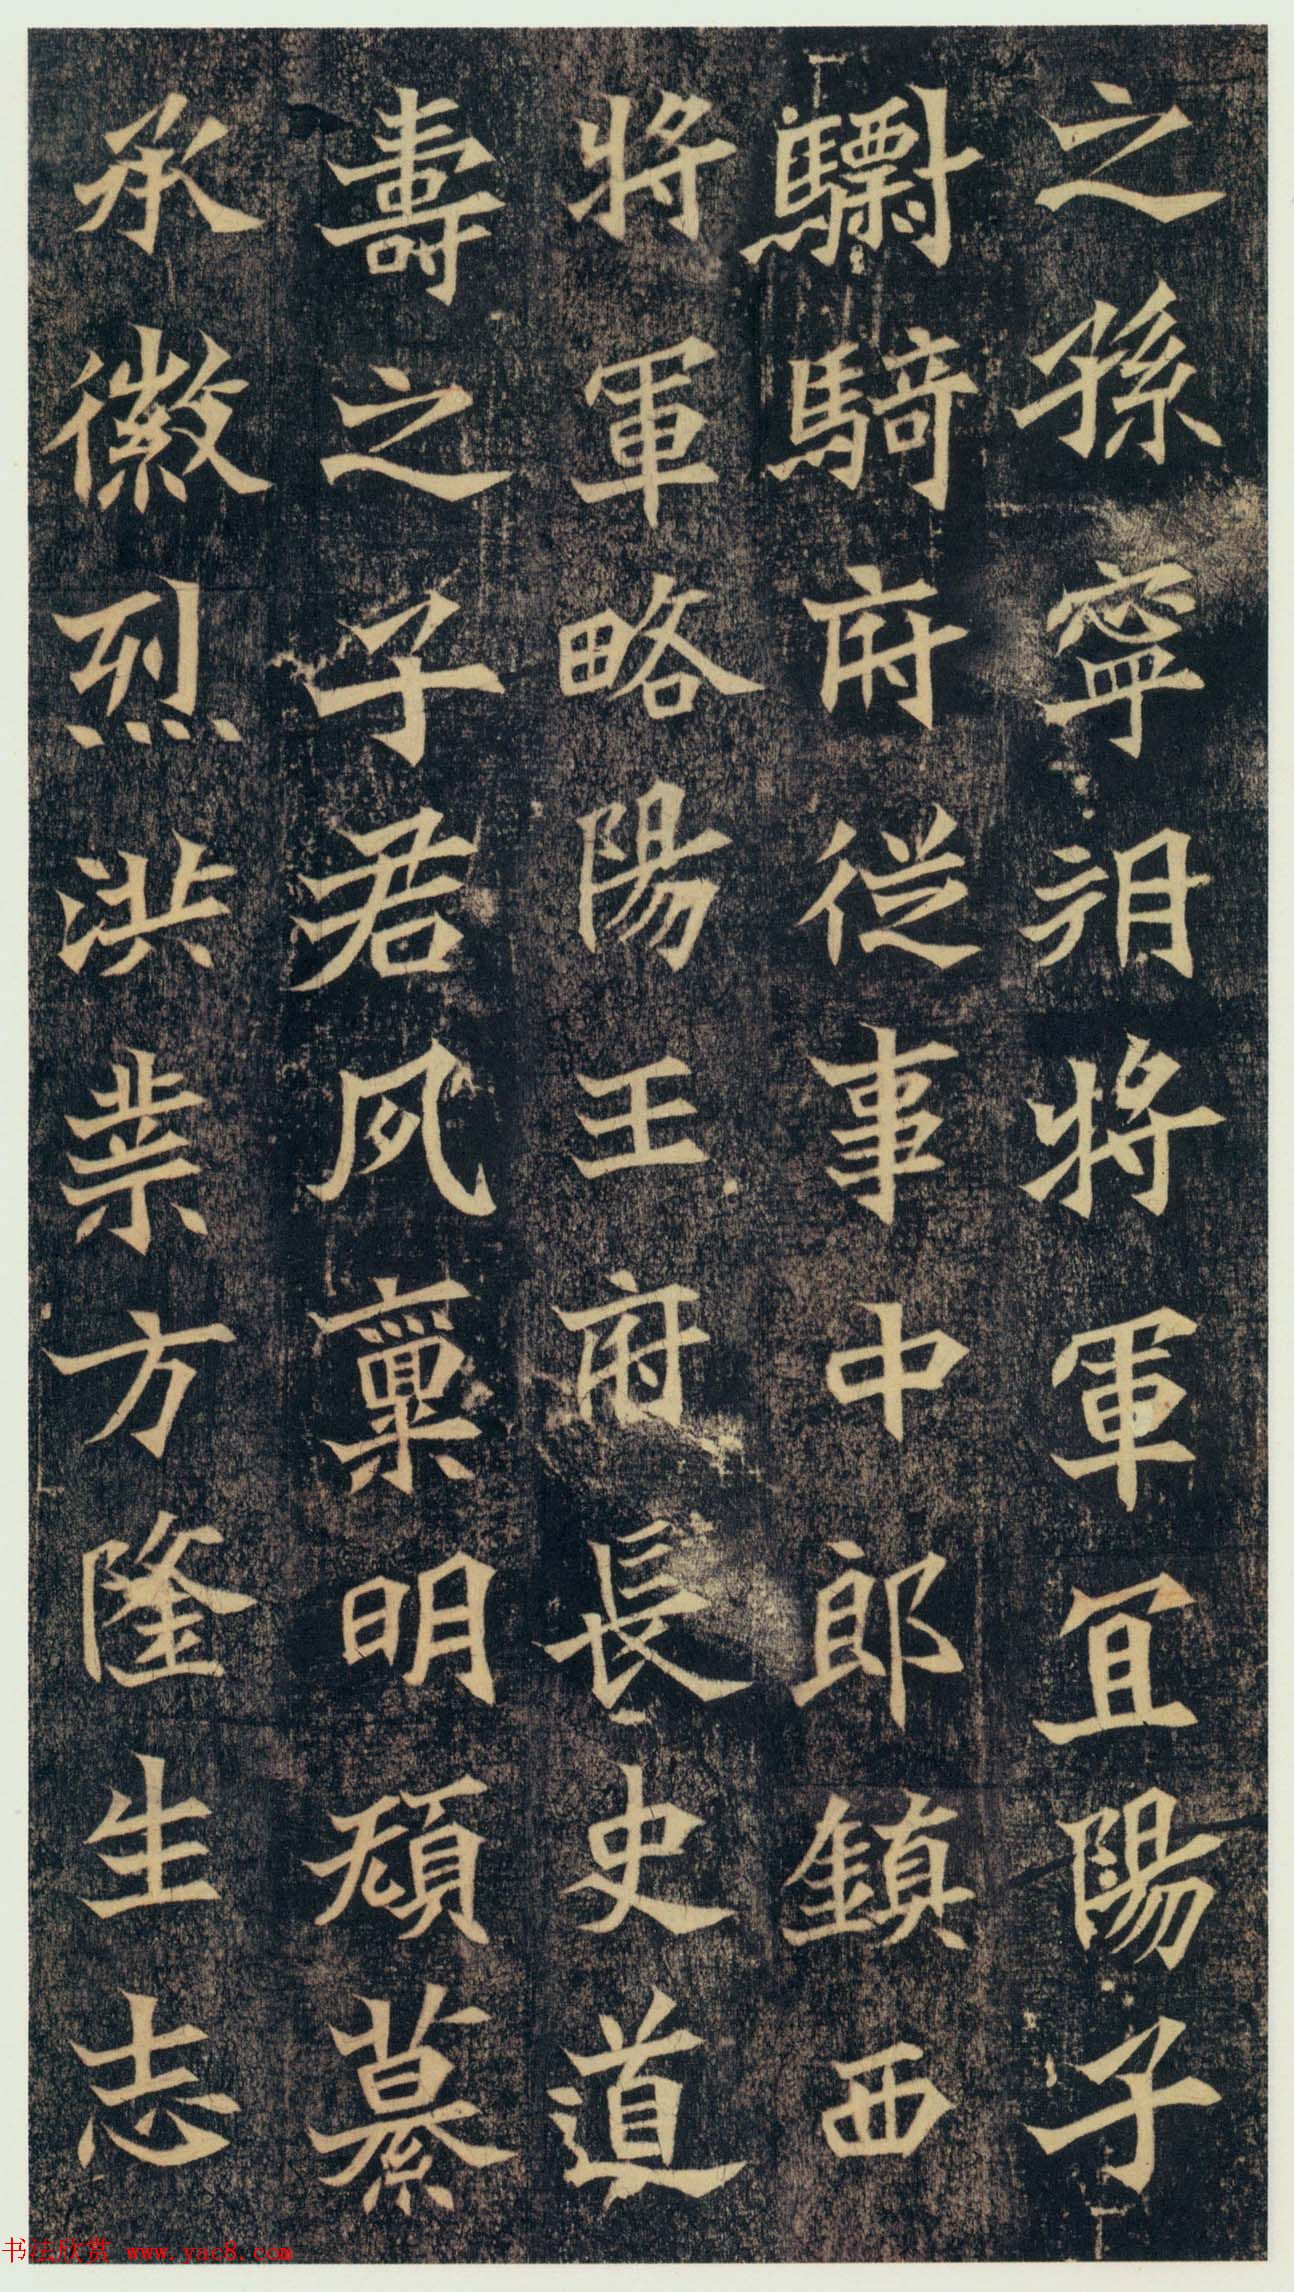 之孫寧朔將軍宜陽子
驃騎府從事中郎鎮西
將軍略陽王府長史道
壽之子君夙稟明碩纂
承徽烈洪業方隆生志
书法欣赏 www.yac8.com